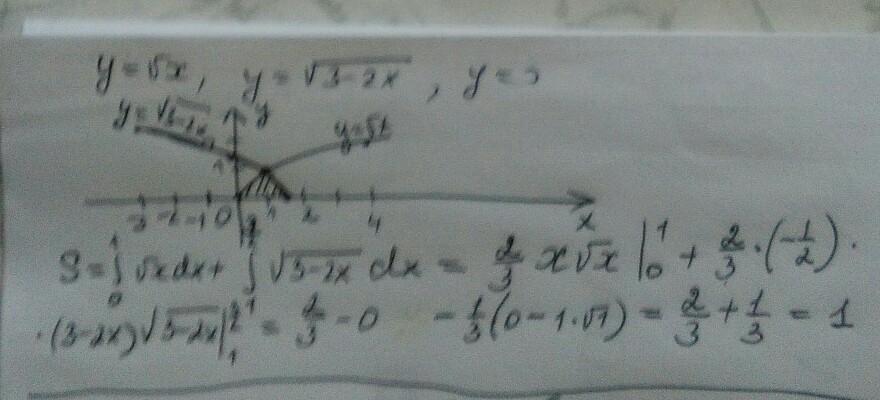 y = √x, y = √(3-2x), y =
y = √(3-2x) y y = √x
1
-3 -2 -1 0 1 2 4 x
S = ∫₀¹ √x dx + ∫₁^(3/2) √(3-2x) dx = 2/3 x√x |₀¹ + 2/3 · (-1/2) ·
· (3-2x)√(3-2x) |₁^(3/2) = 2/3 - 0 - 1/3 (0 - 1·√1) = 2/3 + 1/3 = 1